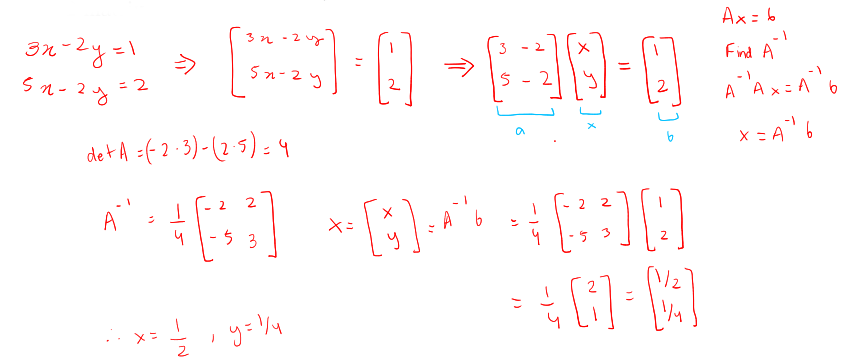 3x-2y=1
5x-2y=2
⇒ [3x-2y; 5x-2y] = [1; 2] ⟹ [3 -2; 5 -2] [x; y] = [1; 2]
a x b
Ax = b
Find A^-1
A^-1 A x = A^-1 b
x = A^-1 b
det A = (-2·3)-(2·5) = 4
A^-1 = 1/4 [-2 2; -5 3]
x = [x; y] = A^-1 b = 1/4 [-2 2; -5 3] [1; 2]
= 1/4 [2; 1] = [1/2; 1/4]
∴ x = 1/2 , y = 1/4